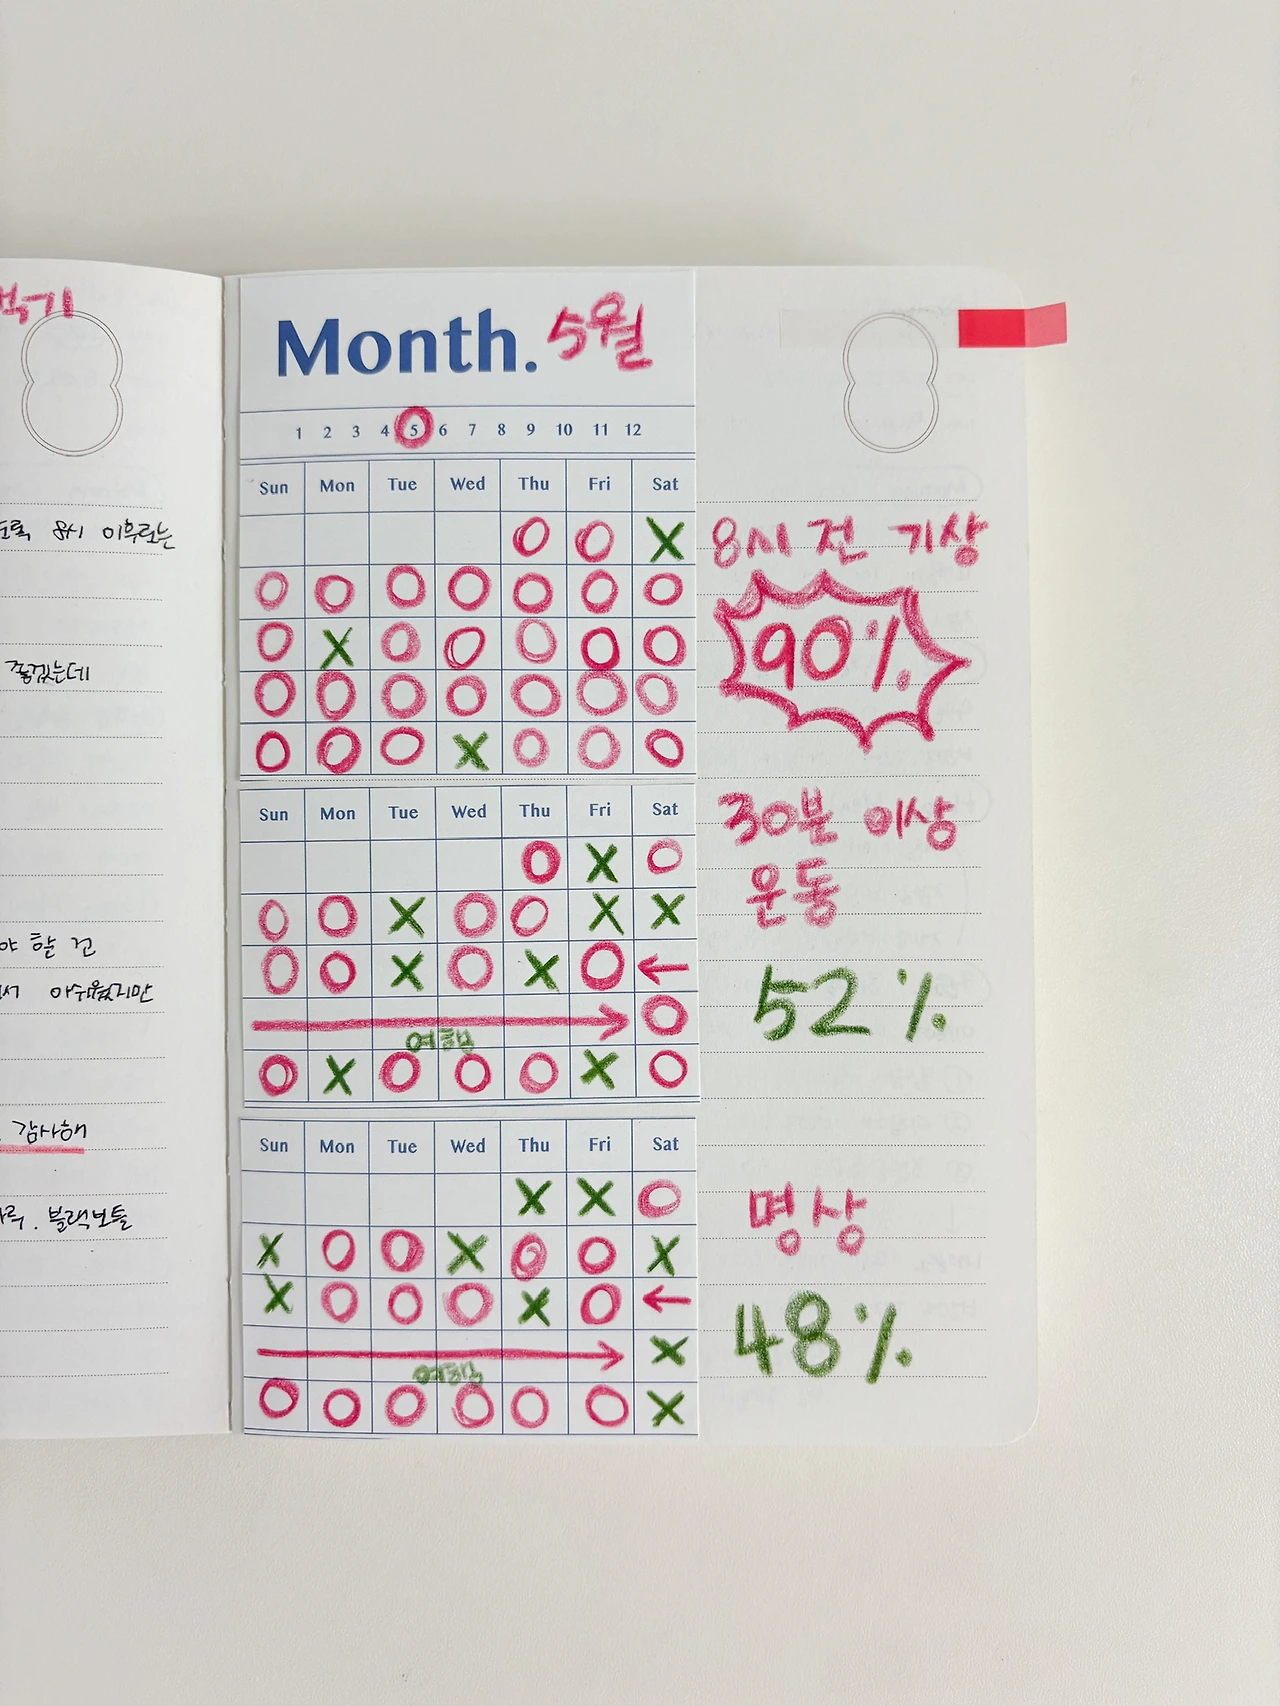 8시 이후로는
좋겠는데
할 건
아쉬웠지만
감사해
블랙보틀
Month. 5월
1 2 3 4 5 6 7 8 9 10 11 12
Sun Mon Tue Wed Thu Fri Sat
O O X
O O O O O O O
O X O O O O O
O O O O O O O
O O O X O O O
8시 전 기상
90%
Sun Mon Tue Wed Thu Fri Sat
O X O
O O X O O X X
O O X O X O ←
→ O
여행
O X O O O X O
30분 이상
운동
52%
Sun Mon Tue Wed Thu Fri Sat
X X O
X O O X O O X
X O O O X O ←
→ X
여행
O O O O O O X
명상
48%